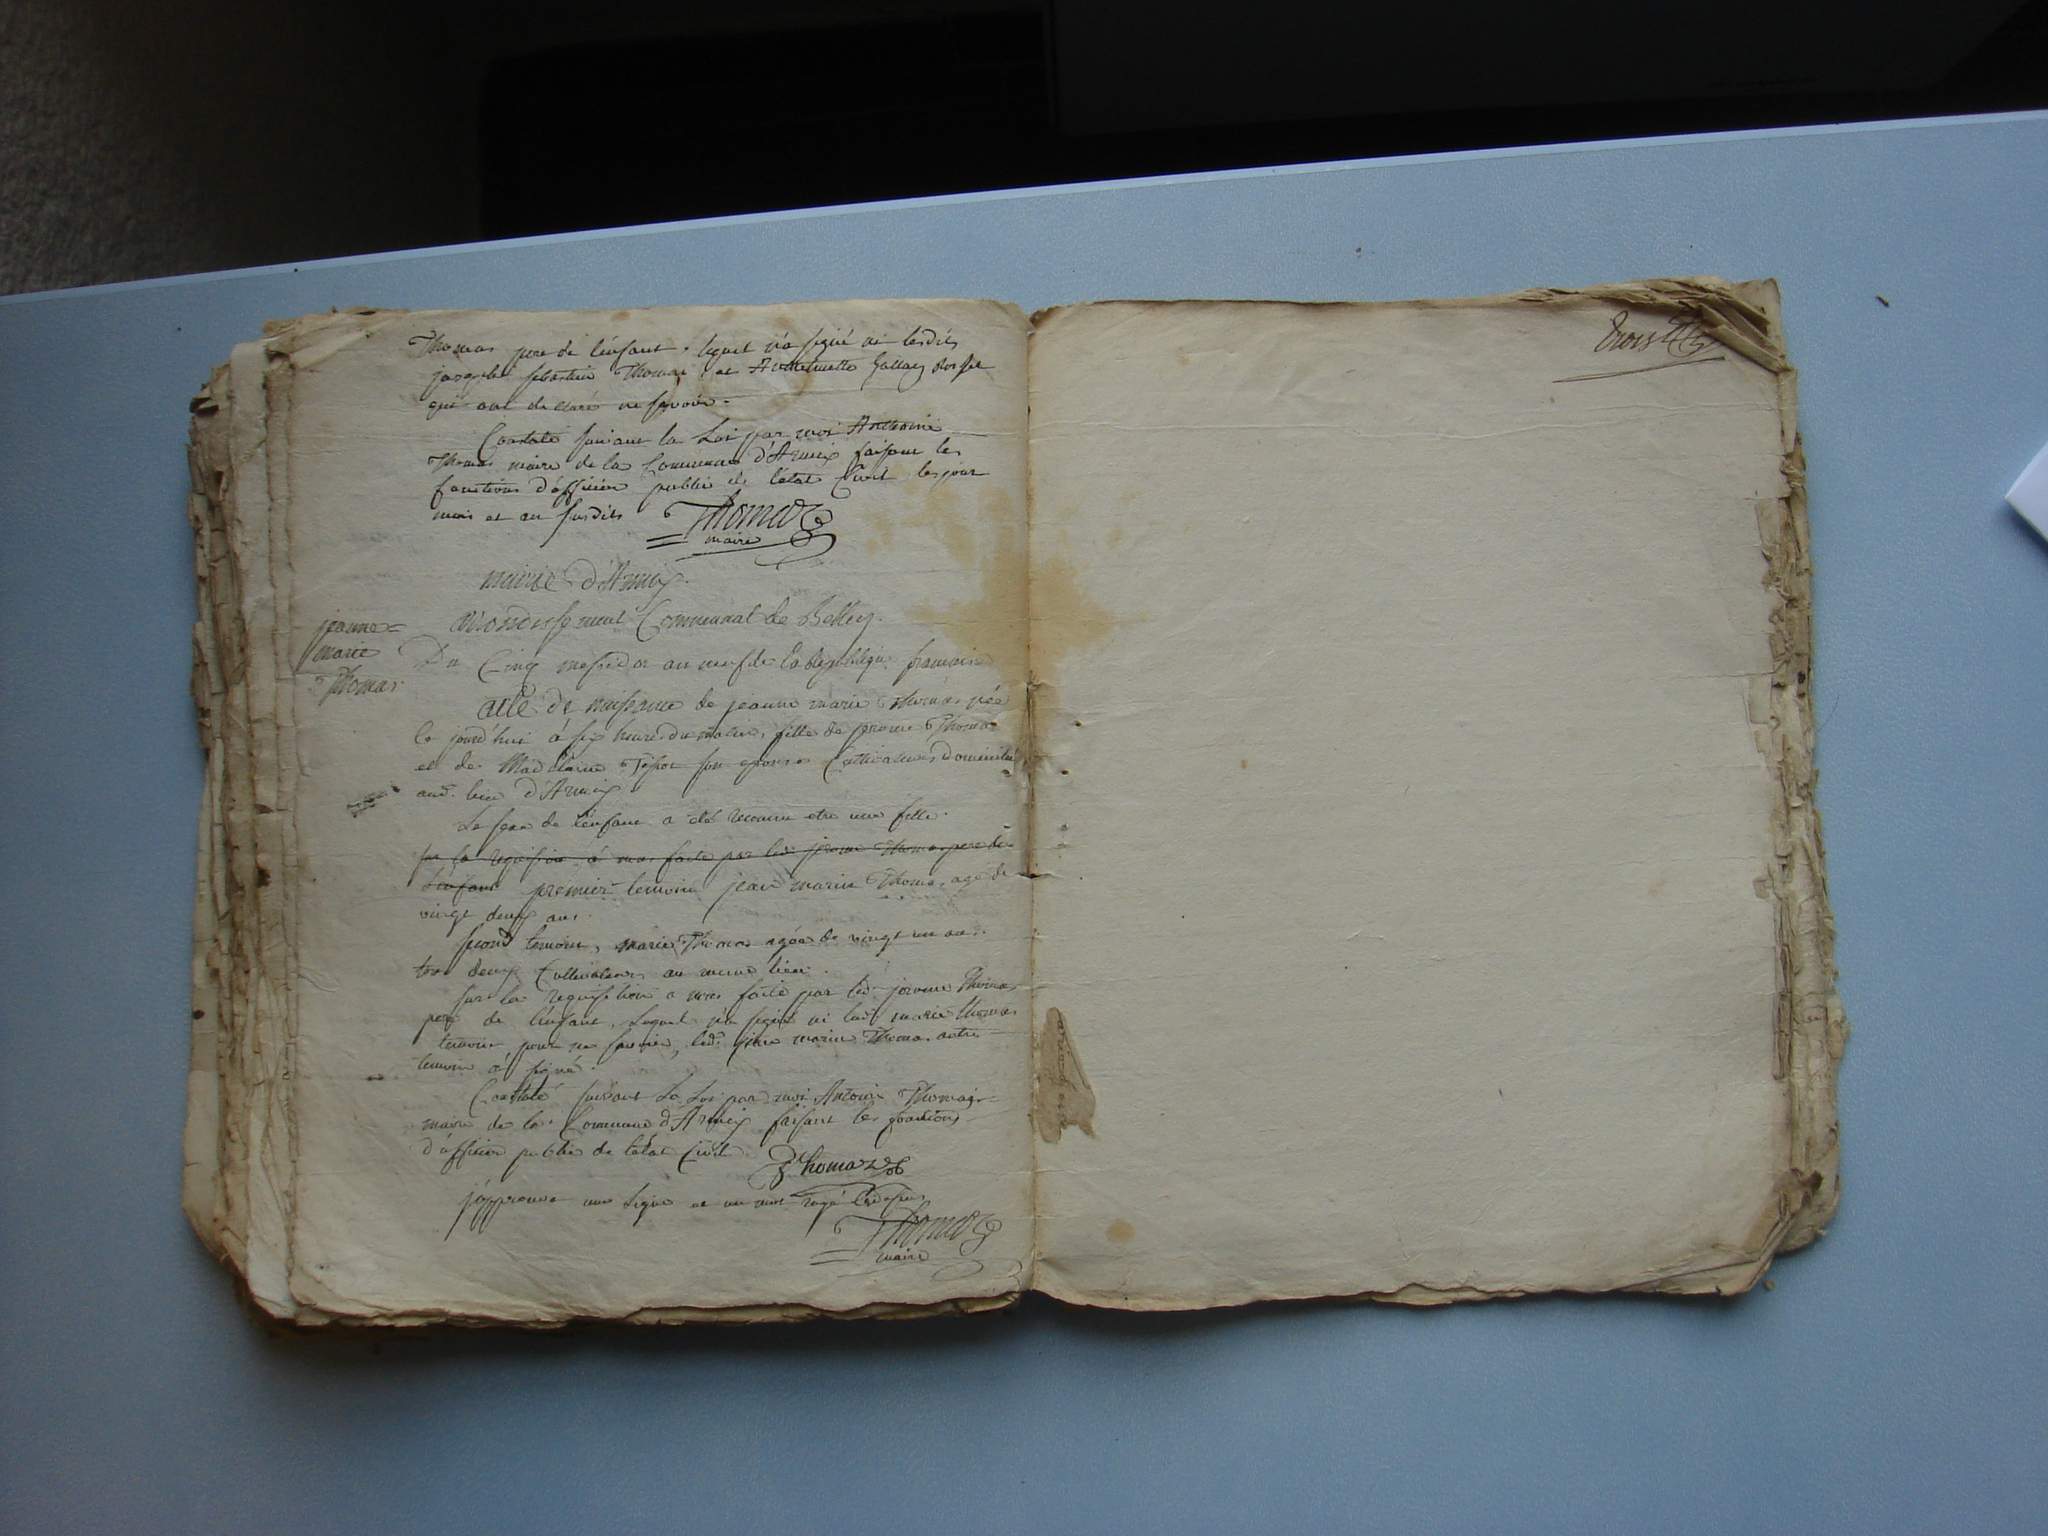 Thomas pere de l'enfant. lequel n'a signé ni lesdits
sebastien Thomas et Antoinette
qui ont declaré ne savoir.
Constaté suivant la Loi par moi Anthoine
Thomas maire de la Commune d'Armix faisant les
fonctions d'officier public de l'état Civil les jour
mois et an susdits Thomas
maire
mairie d'Armix.
arrondissement Communal de Belley.
jeanne=
marie
Thomas.
Du Cinq messidor an neuf de la République francaise
acte de naissance de jeanne marie Thomas née
ce jourd'hui à six heures du matin, fille de jerome Thomas
et de Madelaine son epouse Cultivateurs domiciliés
aud. lieu d'Armix
Le sexe de l'enfant a été reconnu etre une fille.
sur la requisition à nous faite par led. jerome Thomas pere de
l'enfant premier temoin jean marie Thomas, agé de
vingt deux ans.
second temoin, marie Thomas agée de vingt un an.
tous deux Cultivateurs au meme lieu.
sur la requisition a nous faite par led. jerome Thomas
pere de l'enfant, Lequel n'a signé ni lad. marie thomas
temoin pour ne savoir, led. jean marie Thomas autre
temoin a signé.
Constaté suivant La Loi par moi Antoine Thomas=
maire de la Commune d'Armix faisant les fonctions
d'officier public de l'état Civil Thomas
j'approuve une ligne et un mot rayé
Thomas
maire
trois